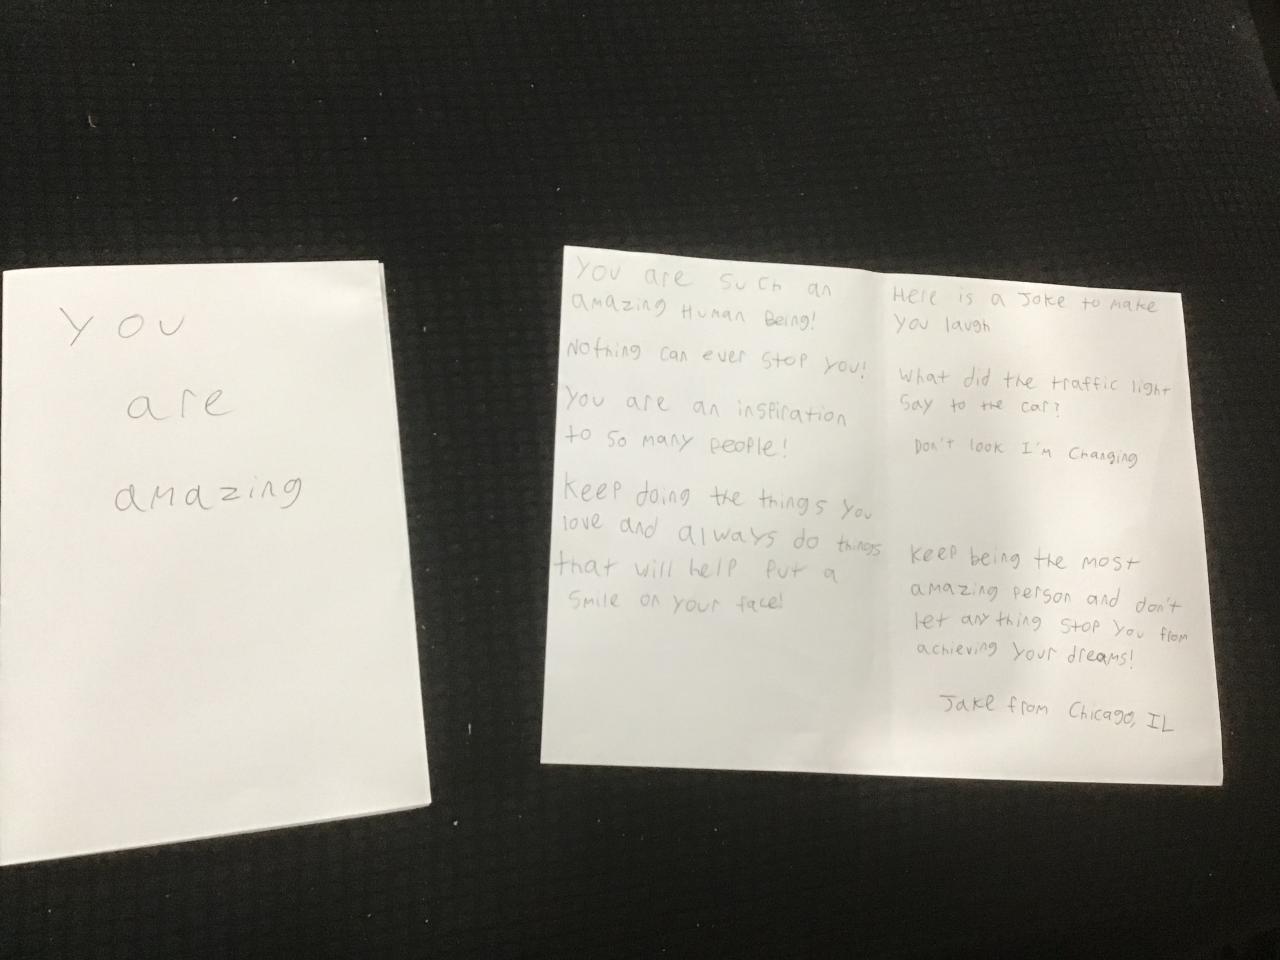 you
are
amazing
you are such an
amazing Human Being!
Nothing can ever stop you!
you are an inspiration
to so many people!
Keep doing the things you
love and always do things
that will help put a
smile on your face!
Here is a Joke to make
you laugh
What did the traffic light
say to the car?
Don't look I'm Changing
Keep being the most
amazing person and don't
let anything stop you from
achieving your dreams!
Jake from Chicago, IL